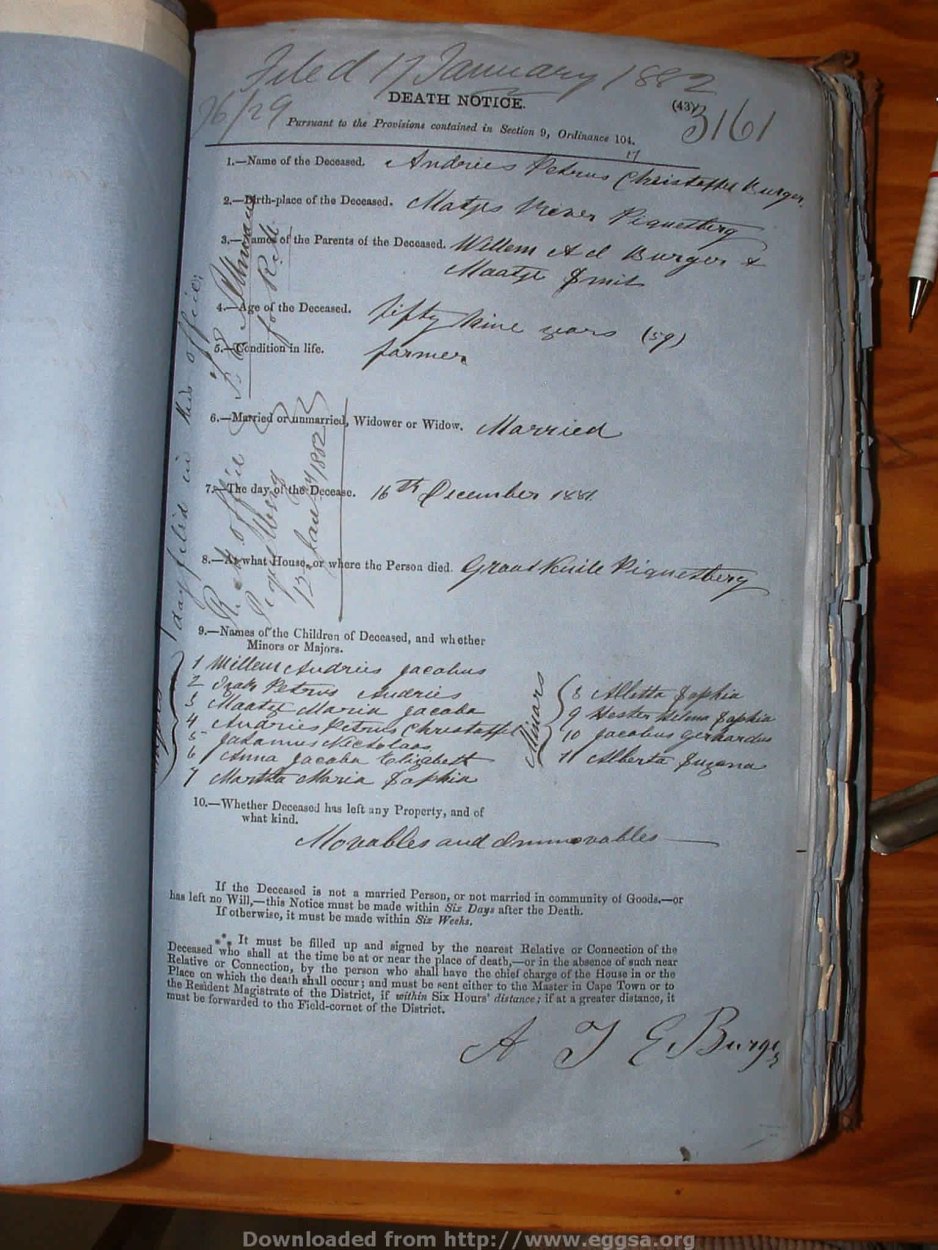 Filed 17 January 1882
76/29
DEATH NOTICE.
(43)
3161
Pursuant to the Provisions contained in Section 9, Ordinance 104.
17
1.—Name of the Deceased. Andries Petrus Christoffel Burger
2.—Birth-place of the Deceased. Matjes River Piquetberg
3.—Names of the Parents of the Deceased. Willem Ad Burger &
Maatje Smit
4.—Age of the Deceased. fifty Nine years (59)
5.—Condition in life. farmer
6.—Married or unmarried, Widower or Widow. Married
7.—The day of the Decease. 16th December 1881.
8.—At what House, or where the Person died. Groot Kuile Piquetberg
9.—Names of the Children of Deceased, and whether
Minors or Majors.
1 Willem Andries Jacobus
2 Izak Petrus Andries
3 Maatje Maria Jacoba
4 Andries Petrus Christoffel
5 Johannes Nicholaas
6 Anna Jacoba Elizabeth
7 Martha Maria Sophia
Minors
8 Aletta Sophia
9 Hester Helena Sophia
10 Jacobus Gerhardus
11 Alberta Suzana
10.—Whether Deceased has left any Property, and of
what kind.
Movables and Immovables
If the Deceased is not a married Person, or not married in community of Goods,—or
has left no Will,—this Notice must be made within Six Days after the Death.
If otherwise, it must be made within Six Weeks.
It must be filled up and signed by the nearest Relative or Connection of the
Deceased who shall at the time be at or near the place of death,—or in the absence of such near
Relative or Connection, by the person who shall have the chief charge of the House in or the
Place on which the death shall occur; and must be sent either to the Master in Cape Town or to
the Resident Magistrate of the District, if within Six Hours' distance; if at a greater distance, it
must be forwarded to the Field-cornet of the District.
A J E Burger
day filed in this office
office
Piquetberg
13 Jany 1882
for R.M.
Downloaded from http://www.eggsa.org